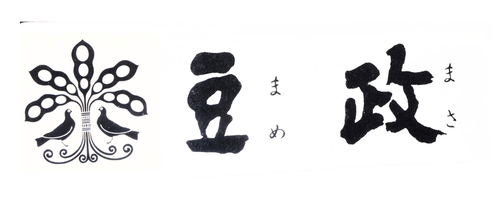 豆
まめ
政
まさ